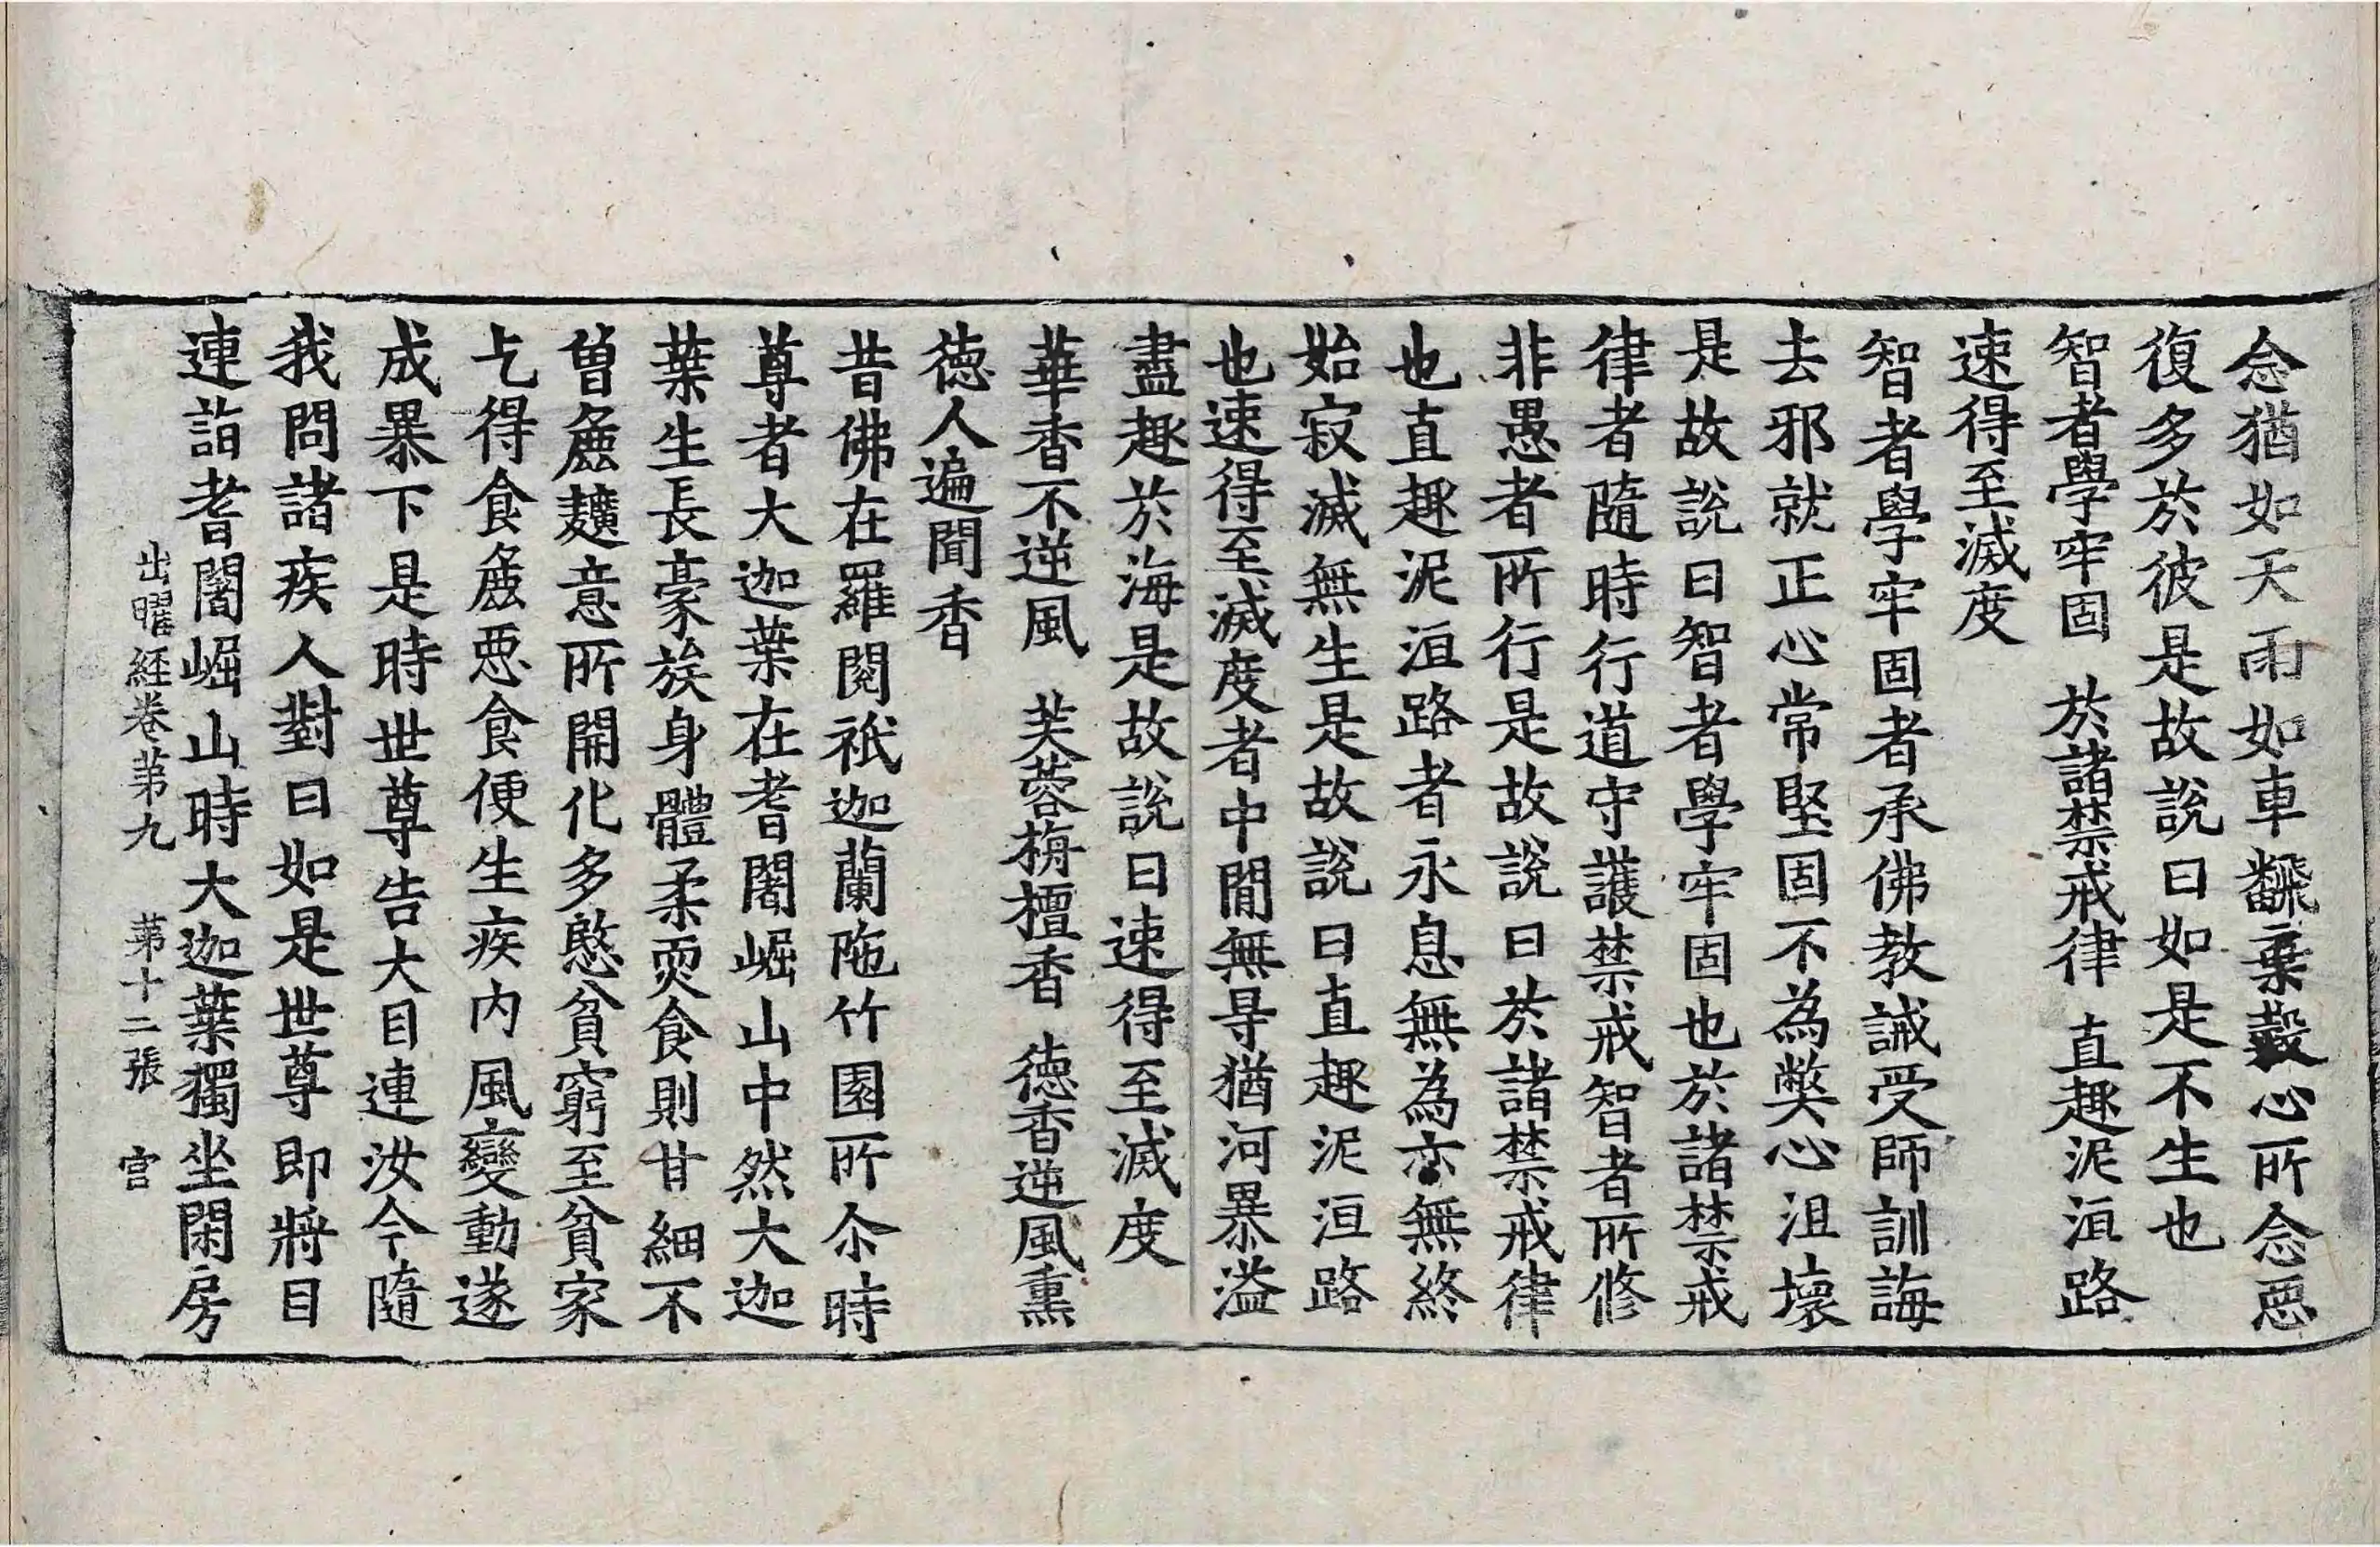 念猶如天雨如車翻棄轂心所念惡
復多於彼是故說曰如是不生也
智者學牢固　於諸禁戒律　直趣泥洹路
速得至滅度
智者學牢固者承佛教誡受師訓誨
去邪就正心常堅固不為弊心沮壞
是故說曰智者學牢固也於諸禁戒
律者隨時行道守護禁戒智者所修
非愚者所行是故說曰於諸禁戒律
也直趣泥洹路者永息無為亦無終
始寂滅無生是故說曰直趣泥洹路
也速得至滅度者中間無㝵猶河暴溢
盡趣於海是故說曰速得至滅度
華香不逆風　芙蓉栴檀香　德香逆風熏
德人遍聞香
昔佛在羅閱祇迦蘭陁竹園所尒時
尊者大迦葉在耆闍崛山中然大迦
葉生長豪族身體柔耎食則甘細不
曾麁䵃意所開化多愍貧窮至貧家
乞得食麁惡食便生疾內風變動遂
成暴下是時世尊告大目連汝今隨
我問諸疾人對曰如是世尊即將目
連詣耆闍崛山時大迦葉獨坐閑房
出曜経卷第九　第十二張　官